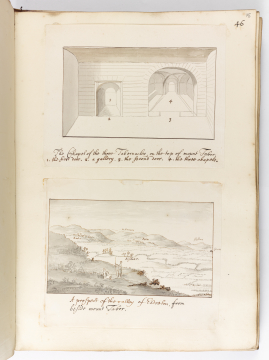 46
The Chapel of the three Tabernacles on the top of mount Tabor.
1. the first dore. 2. a gallery. 3. the second dore. 4. the three chapels.
4
3
A prospect of the valley of Esdrelon from
beside mount Tabor.